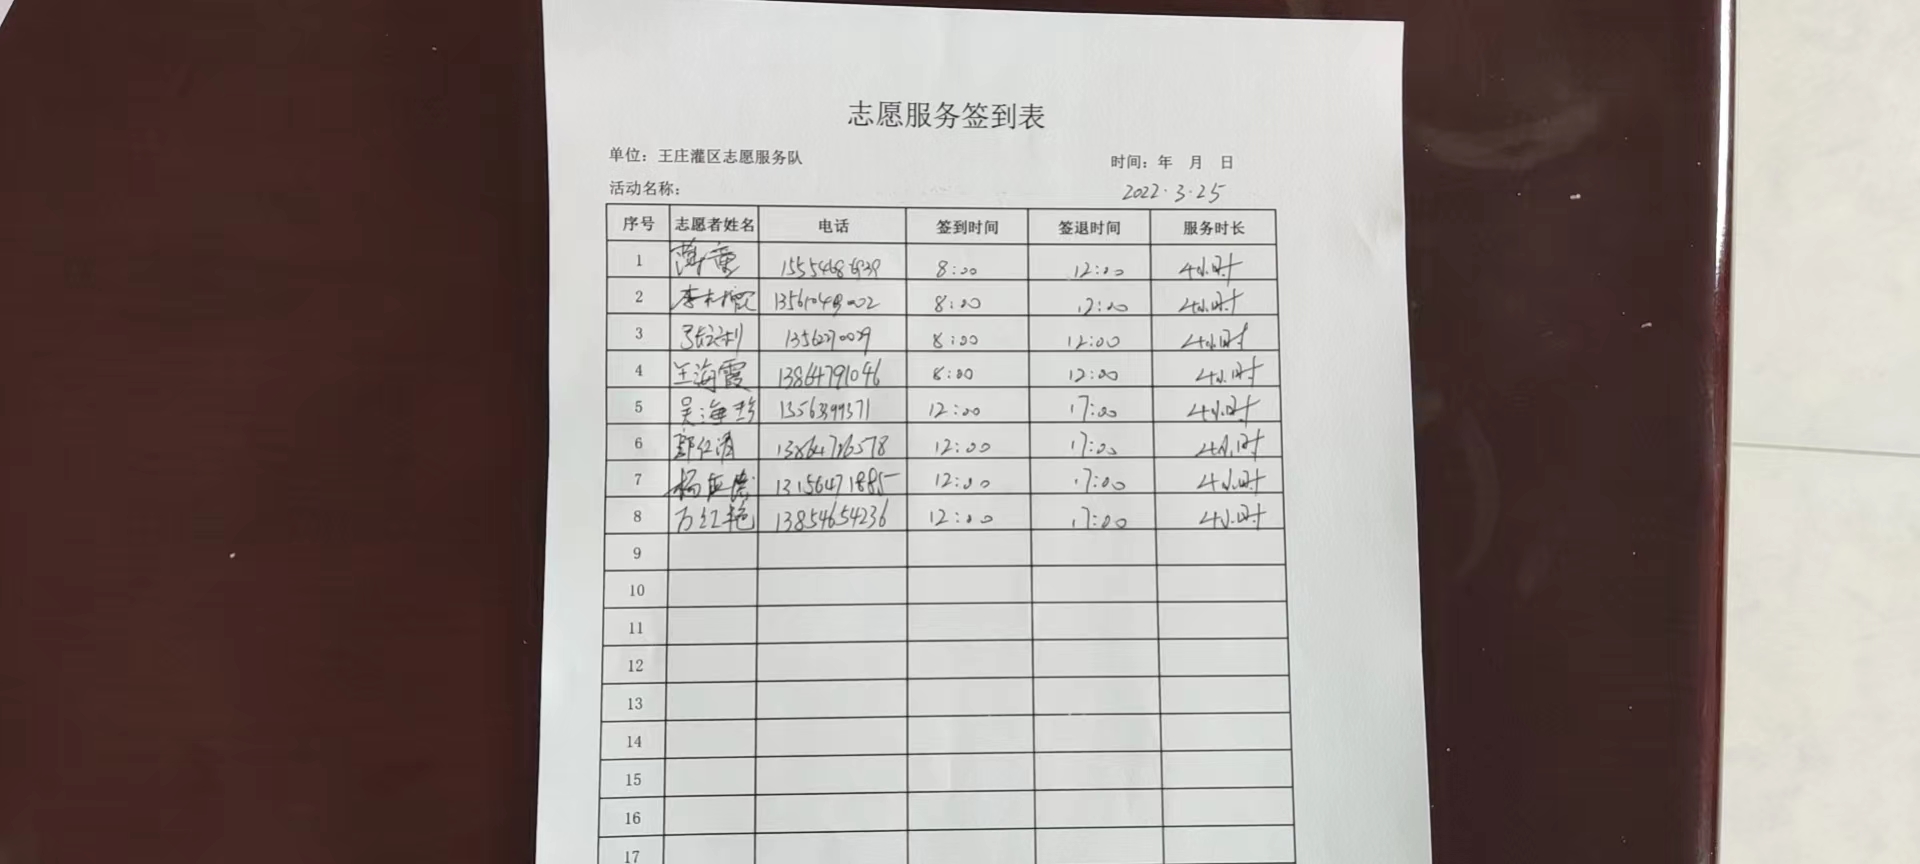 志愿服务签到表
单位：王庄灌区志愿服务队
时间：年 月 日
活动名称：
2022.3.25
序号 志愿者姓名 电话 签到时间 签退时间 服务时长
1 8:00 12:00 4小时
2 8:00 12:00 4小时
3 8:00 12:00 4小时
4 王海霞 13864791046 8:00 12:00 4小时
5 吴海珍 12:00 17:00 4小时
6 13864726578 12:00 17:00 4小时
7 13156471885 12:00 17:00 4小时
8 万红艳 13854654236 12:00 17:00 4小时
9
10
11
12
13
14
15
16
17